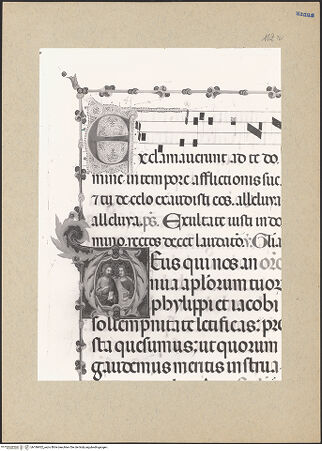 Exclamaverunt ad te do
mine in tempore afflictionis sue
7 tu de celo exaudisti eos. alleluya
alleluya. ps. Exultate iusti in do
mino. rectos decet laudatio. Glia
Deus qui nos an
nua aplorum tuor
phylippi et iacobi
sollempnitate letificas: pre
sta quesumus: ut quorum
gaudemus meritis instrua